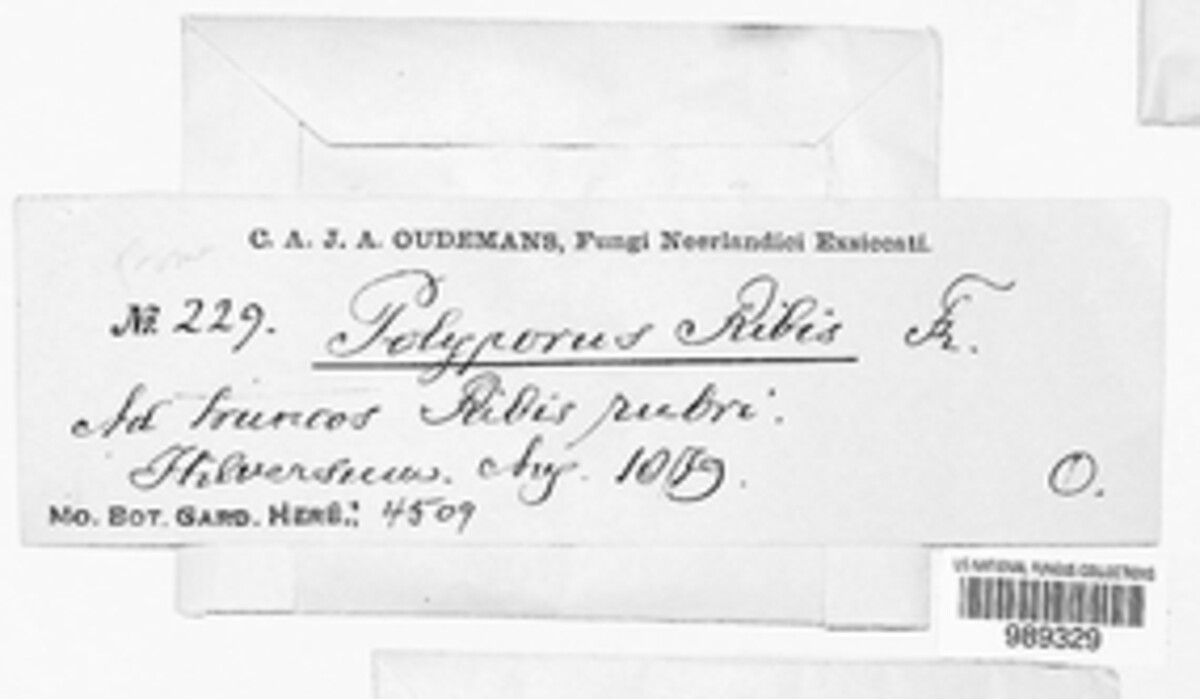 C. A. J. A. OUDEMANS, Fungi Neerlandici Exsiccati.
№ 229. Polyporus Ribis Fr.
Ad truncos Ribis rubri.
Hilversum. Aug. 1879.
O.
MO. BOT. GARD. HERB.: 4509
US NATIONAL FUNGUS COLLECTIONS
989329